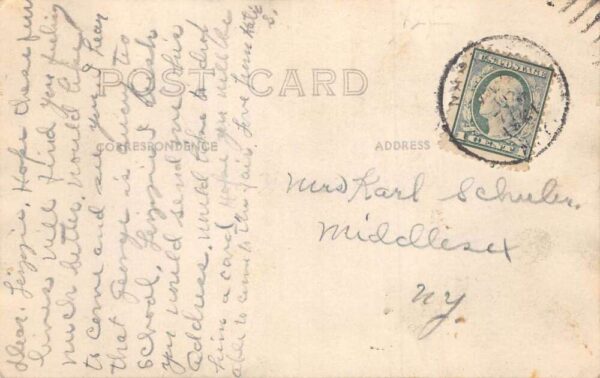 POST CARD
CORRESPONDENCE
ADDRESS
U.S. POSTAGE
1 CENT 1
Dear Lizzie, Hope these few
lines will find you feeling
much better, would like
to come and see you. I hear
that George is going to
school. Lizzie I wish
you would send me his
address. would like to drop
him a card. Hope you will be
able to come to the fair. Love from Kate
S.
Mrs Karl Schuler.
Middlesex
NY